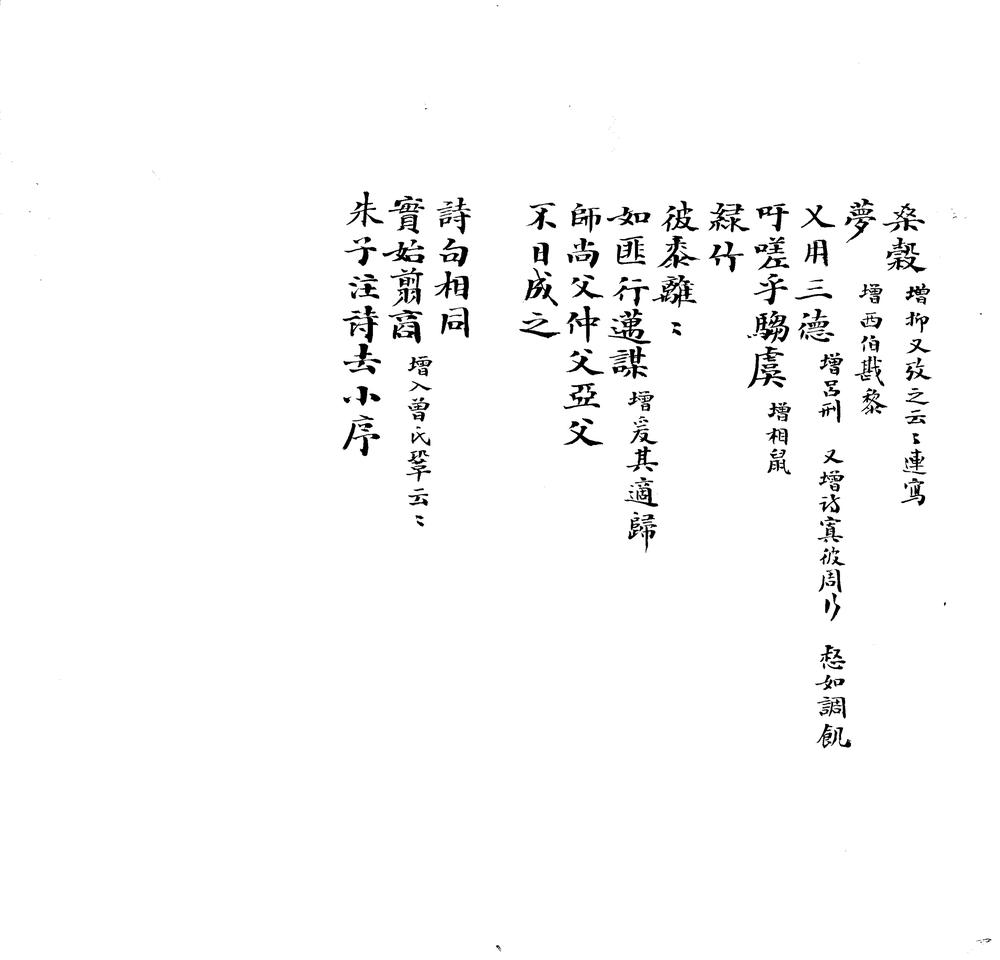 桑穀 增抑又攷之云〻連寫
夢 增西伯戡黎
乂用三德 增呂刑 又增詩寘彼周行 惄如調飢
吁嗟乎騶虞 增相鼠
綠竹
彼黍離〻
如匪行邁謀 增爰其適歸
師尚父仲父亞父
不日成之
詩句相同
實始翦商 增入曾氏鞏云〻
朱子注詩去小序